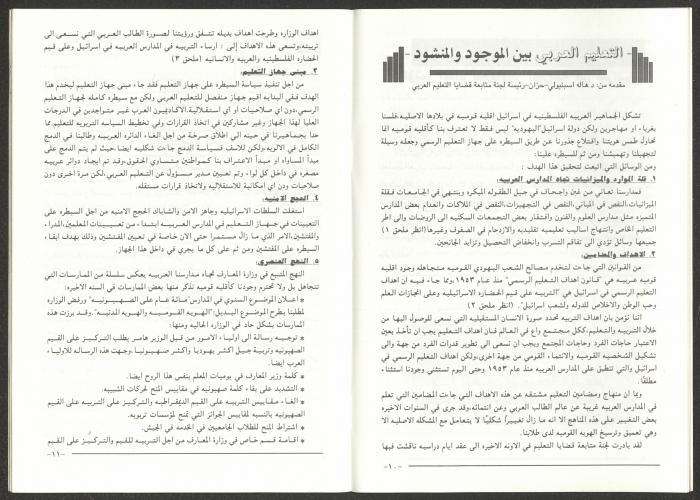 التعليم العربي بين الموجود والمنشود
مقدمه من: د. هاله اسبنيولي-حزان-رئيسة لجنة متابعة قضايا التعليم العربي
تشكل الجماهير العربيه الفلسطينيه في اسرائيل اقليه قوميه في بلادها الاصليه.فلسنا
بغرباء او مهاجرين ولكن دولة اسرائيل"اليهوديه" ليس فقط لا تعترف بنا كأقليه قوميه انما
تحاول طمس هويتنا واقتلاع جذورنا عن طريق السيطره على جهاز التعليم الرسمي وجعله وسيلة
لتجهيلنا وتهميشنا ومن ثم للسيطره علينا:
ومن الوسائل التي اتبعت لتحقيق هذا الهدف :
١. قلة الموارد والميزانيات تجاه المدارس العربيه:
فمدارسنا تعاني من غبن واجحاف في جيل الطفوله المبكره وينتهي في الجامعات فـقلة
الميزانيات،النقص في المباني،النقص في التجهيزات،النقص في الملاكات وانعدام بعض المدارس
المتميزه مثل مدارس العلوم والفنون وافتقار بعض التجمعات السكنيه الى الروضات والى اطر
التعليم الخاص وانتهاج اساليب تعليميه تقليديه والازدحام في الصفوف وغيرها(انظر ملحق ١)
جميعها وسائل تؤدي الى تفاقم التسرب وانخفاض التحصيل وتزايد الجانحين.
٢. الاهداف والمضامين:
من القوانين التي جاءت لتخدم مصالح الشعب اليهودي القوميه متجاهله وجود اقليه
قوميه عربيه هي "قانون اهداف التعليم الرسمي" منذ عام ١٩٥٣،ومما جاء فيه ان اهداف
التعليم الرسمي في اسرائيل هي "التربيه على قيم الحضاره الاسرائيليه وعلى انجازات العلم
وحب الوطن والاخلاص للدوله ولشعب اسرائيل". (انظر ملحق ٢)
اننا نؤمن بان اهداف التربيه تحدد صورة الانسان المستقبليه التي نسعى للوصول اليها من
خلال التربيه والتعليم،ككل مجتمع واع في العالم فان اهداف التعليم يجب ان تأخذ بعين
الاعتبار حاجات الفرد وحاجات المجتمع ويجب ان نسعى الى تطوير قدرات الفرد من جهة والى
تشكيل الشخصيه القوميه والانتماء القومي من جهة اخرى،ولكن اهداف التعليم الرسمي في
اسرائيل والتي تنطبق على المدارس العربيه منذ عام ١٩٥٣ وحتى اليوم تستثني وجودنا استثناء
مطلقًا.
وبما ان منهاج ومضامين التعليم مشتقه عن هذه الاهداف التي جاءت المضامين التي تعلم
في المدارس العربيه غريبة عن عالم الطالب العربي وعن انتمائه،وقد جرى في السنوات الاخيره
بعض التغيير على هذه المناهج الا انه ما زال تغييراً شكليًا لا يتعامل مع المشكله الاصليه الا
وهي تعميق وترسيخ الهويه القوميه لدى طلابنا.
لقد بادرت لجنة متابعة قضايا التعليم في الاونه الاخيره الى عقد ايام دراسيه ناقشت فيها
-١٠-
اهداف الوزاره وطرحت اهداف بديله تتفق ورؤيتنا لصورة الطالب العربي التي نسعى الى
تربيته،وتسعى هذه الاهداف إلى : ارساء التربيه في المدارس العربيه في اسرائيل وعلى قيم
الحضاره الفلسطينيه والعربيه والانسانيه (ملحق ٣)
٣. مبنى جهاز التعليم:
من اجل تنفيذ سياسة السيطره على جهاز التعليم فقد جاء مبنى جهاز التعليم ليخدم هذا
الهدف ففي البدايه اقيم جهاز منفصل للتعليم العربي ولكن مع سيطره كامله لجهاز التعليم
الرسمي،دون اي صلاحيات او اي استقلالية.الاكادميون العرب غير متواجدين في الدرجات
العليا لهذا الجهاز وغير مشاركين في اتخاذ القرارات وفي تخطيط السياسه التربويه للتعليم.مما
حدا بجماهيرنا في حينه الى اطلاق صرخة من اجل الغاء الدائره العربيه وطالبنا في الدمج
الكامل في الالويه،ولكن للاسف فسياسة الدمج جاءت شكليه ايضا حيث لم يتم الدمج على
مبدأ المساواه او مبدأ الاعتراف بنا كمواطنين متساوي الحقوق،وقد تم ايجاد دوائر عربيه
مصغره في داخل كل لواء وتم تعيين مدير مسؤول عن التعليم العربي،لكن مرة اخرى دون
صلاحيات ودن اي امكانية للاستقلاليه ولاتخاذ قرارات مستقله.
٤. الحجج الامنيه:
استغلت السلطات الاسرائيليه وجهاز الامن والشاباك الحجج الامنيه من اجل السيطره على
التعيينات في جهاز التعليم في المدارس العربيه ابتداءا من تعيينات المعلمين،المدراء
والمفتشين،الامر الذي ما زال مستمرا حتى الان خاصة في تعيين المفتشين وذلك بهدف ابقاء
السيطره على المفتشين ومن ثم على كل ما يجري في داخل هذا الجهاز.
٥. النهج العنصري:
النهج المتبع في وزارة المعارف تجاه مدارسنا العربيه يعكس سلسلة من الممارسات التي
تتجاهل بل ولا تحترم وجودنا كأقليه قوميه نذكر منها بعض الممارسات في السنه الاخيره:
* اعلان الموضوع السنوي في المدارس"مائة عام على الصهيونيه" ورفض الوزاره
لمطلبنا بطرح الموضوع البديل:"الهويه القوميه والهويه المدنيه". وقد برزت هذه
الممارسات بشكل حاد في الوزاره الحاليه ومنها:
* توجيه رسالة الى اولياء الامور من قبل الوزير هامر يطلب التركيز على القيم
الصهيونيه وتربية جيل اكثر يهوديا واكثر صهيونيا .وجهت هذه الرساله للاولياء
العرب ايضا.
* كلمة وزير المعارف في يوميات المعلم بنفس هذا الروح ايضا.
* التشديد على بقاء كلمة صهيونيه في مقاييس المنح لحركات الشبيبه.
* الغاء مقاييس التربيه على القيم الديمقراطيه والتركيز على التربيه على القيم
الصهيونيه بالنسبه لمقاييس الجوائز التي تمنح لمؤسسات تربويه.
* اشتراط المنح للطلاب الجامعيين في الخدمه في الجيش.
* اقامة قسم خاص في وزارة المعارف من اجل التربيه للقيم والتركيز على القيم
-١١-